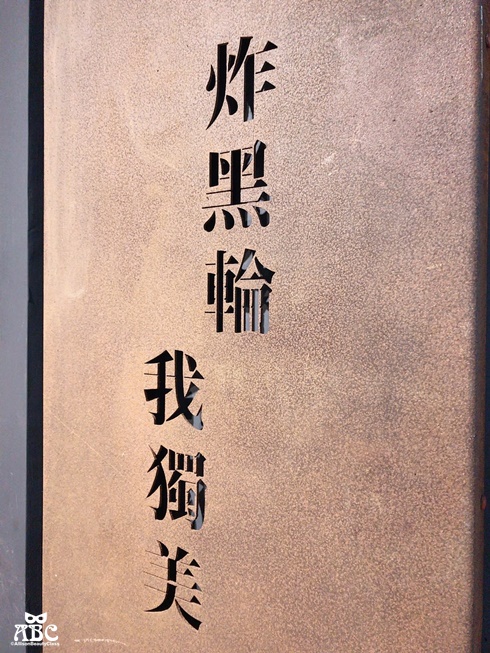 炸黑輪
我獨美
ABC
©AllisonBeautyClass